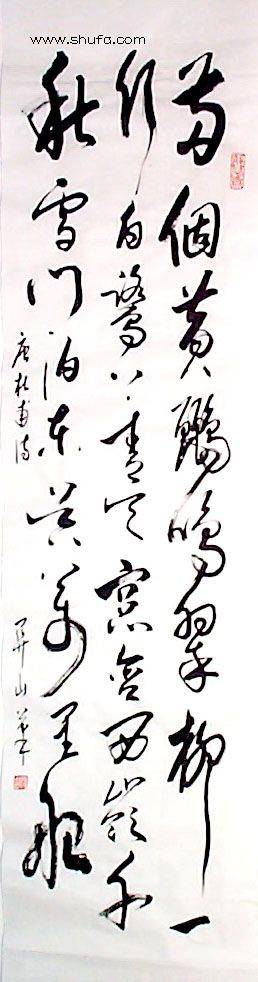 www.shufa.com
兩個黃鸝鳴翠柳一
行白鷺上青天窗含西嶺千
秋雪門泊東吳萬里船
唐杜甫詩